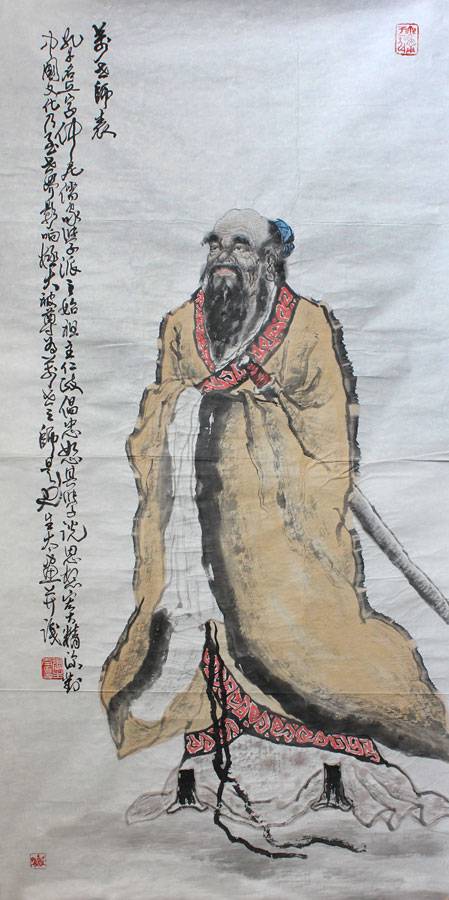 萬世師表
孔子名丘字仲尼儒家學派之始祖主仁政倡忠恕其學說思想宏大精深對
中國文化乃至世界影响極大被尊為萬世之師是也生太画并識